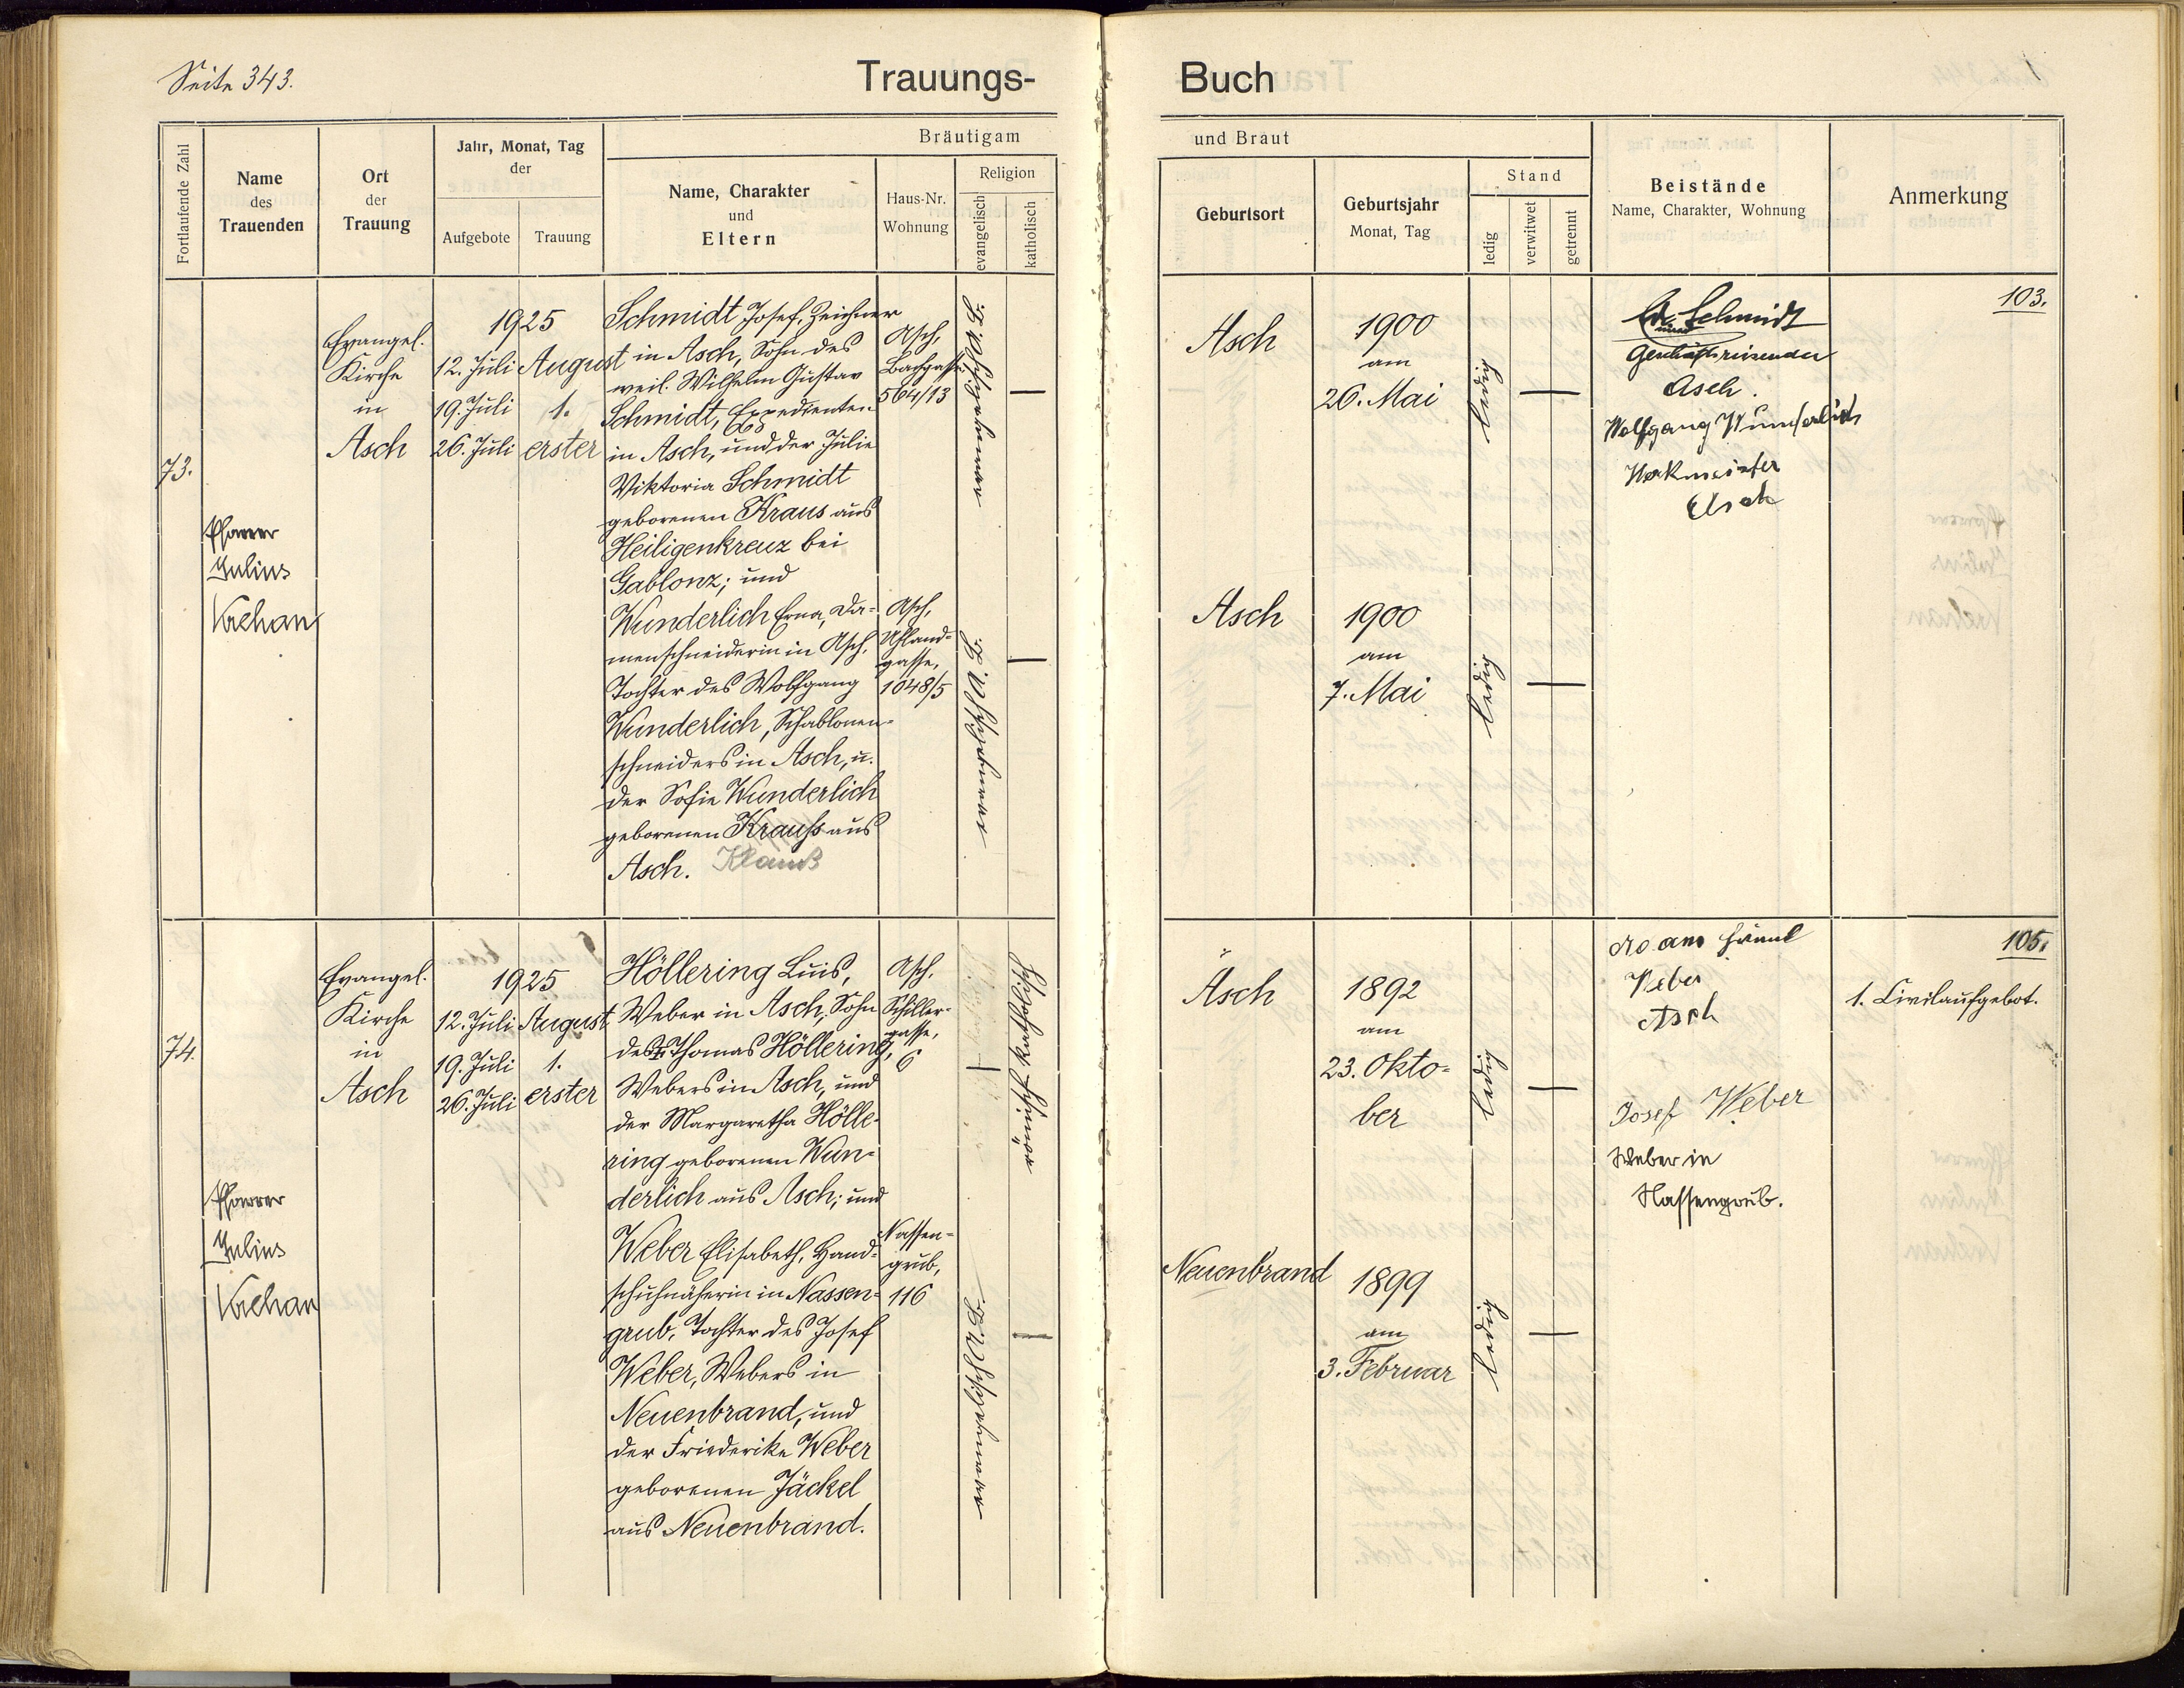 Seite 343.
Trauungs-
Buch
Fortlaufende Zahl
Name
des
Trauenden
Ort
der
Trauung
Jahr, Monat, Tag
der
Aufgebote
Trauung
Bräutigam
Name, Charakter
und
Eltern
Haus-Nr.
Wohnung
Religion
evangelisch
katholisch
und Braut
Geburtsort
Geburtsjahr
Monat, Tag
Stand
ledig
verwitwet
getrennt
Beistände
Name, Charakter, Wohnung
Anmerkung
73.
Pfarrer
Julius
Evangel.
Kirche
in
Asch
1925
12. Juli
19. Juli
26. Juli
August
1.
erster
Schmidt Josef, Zeichner
in Asch, Sohn des
weil. Wilhelm Gustav
Schmidt, Expedienten
in Asch, und der Julie
Viktoria Schmidt
geborenen Kraus aus
Heiligenkreuz bei
Gablonz; und
Wunderlich Erna, Da-
menschneiderin in Asch,
Tochter des Wolfgang
Wunderlich, Schablonen-
schneiders in Asch, u.
der Sofie Wunderlich
geborenen Krauß aus
Asch. Klauß
Asch,
Bachgasse
564/13
Asch,
Uhland-
gasse,
1048/5
evangelisch A. B.
—
evangelisch A. B.
—
Asch
1900
am
26. Mai
ledig
—
Asch
1900
am
7. Mai
ledig
—
Schmidt
Geschäftsreisender
Asch.
Wolfgang Wunderlich
Werkmeister
Asch
103.
74.
Pfarrer
Julius
Evangel.
Kirche
in
Asch
1925
12. Juli
19. Juli
26. Juli
August
1.
erster
Höllering Luis,
Weber in Asch, Sohn
des Thomas Höllering,
Webers in Asch, und
der Margaretha Hölle-
ring geborenen Wun-
derlich aus Asch; und
Weber Elisabeth, Hand-
schuhnäherin in Nassen-
grub, Tochter des Josef
Weber, Webers in
Neuenbrand, und
der Friederike Weber
geborenen Jäckel
aus Neuenbrand.
Asch,
Schiller-
gasse,
6
Nassen-
grub,
116
—
römisch katholisch
evangelisch A. B.
—
Asch
1892
am
23. Okto-
ber
ledig
—
Neuenbrand
1899
am
3. Februar
ledig
—
Weber
Asch
Josef Weber
Weber in
Nassengrub.
105.
1. Civilaufgebot.